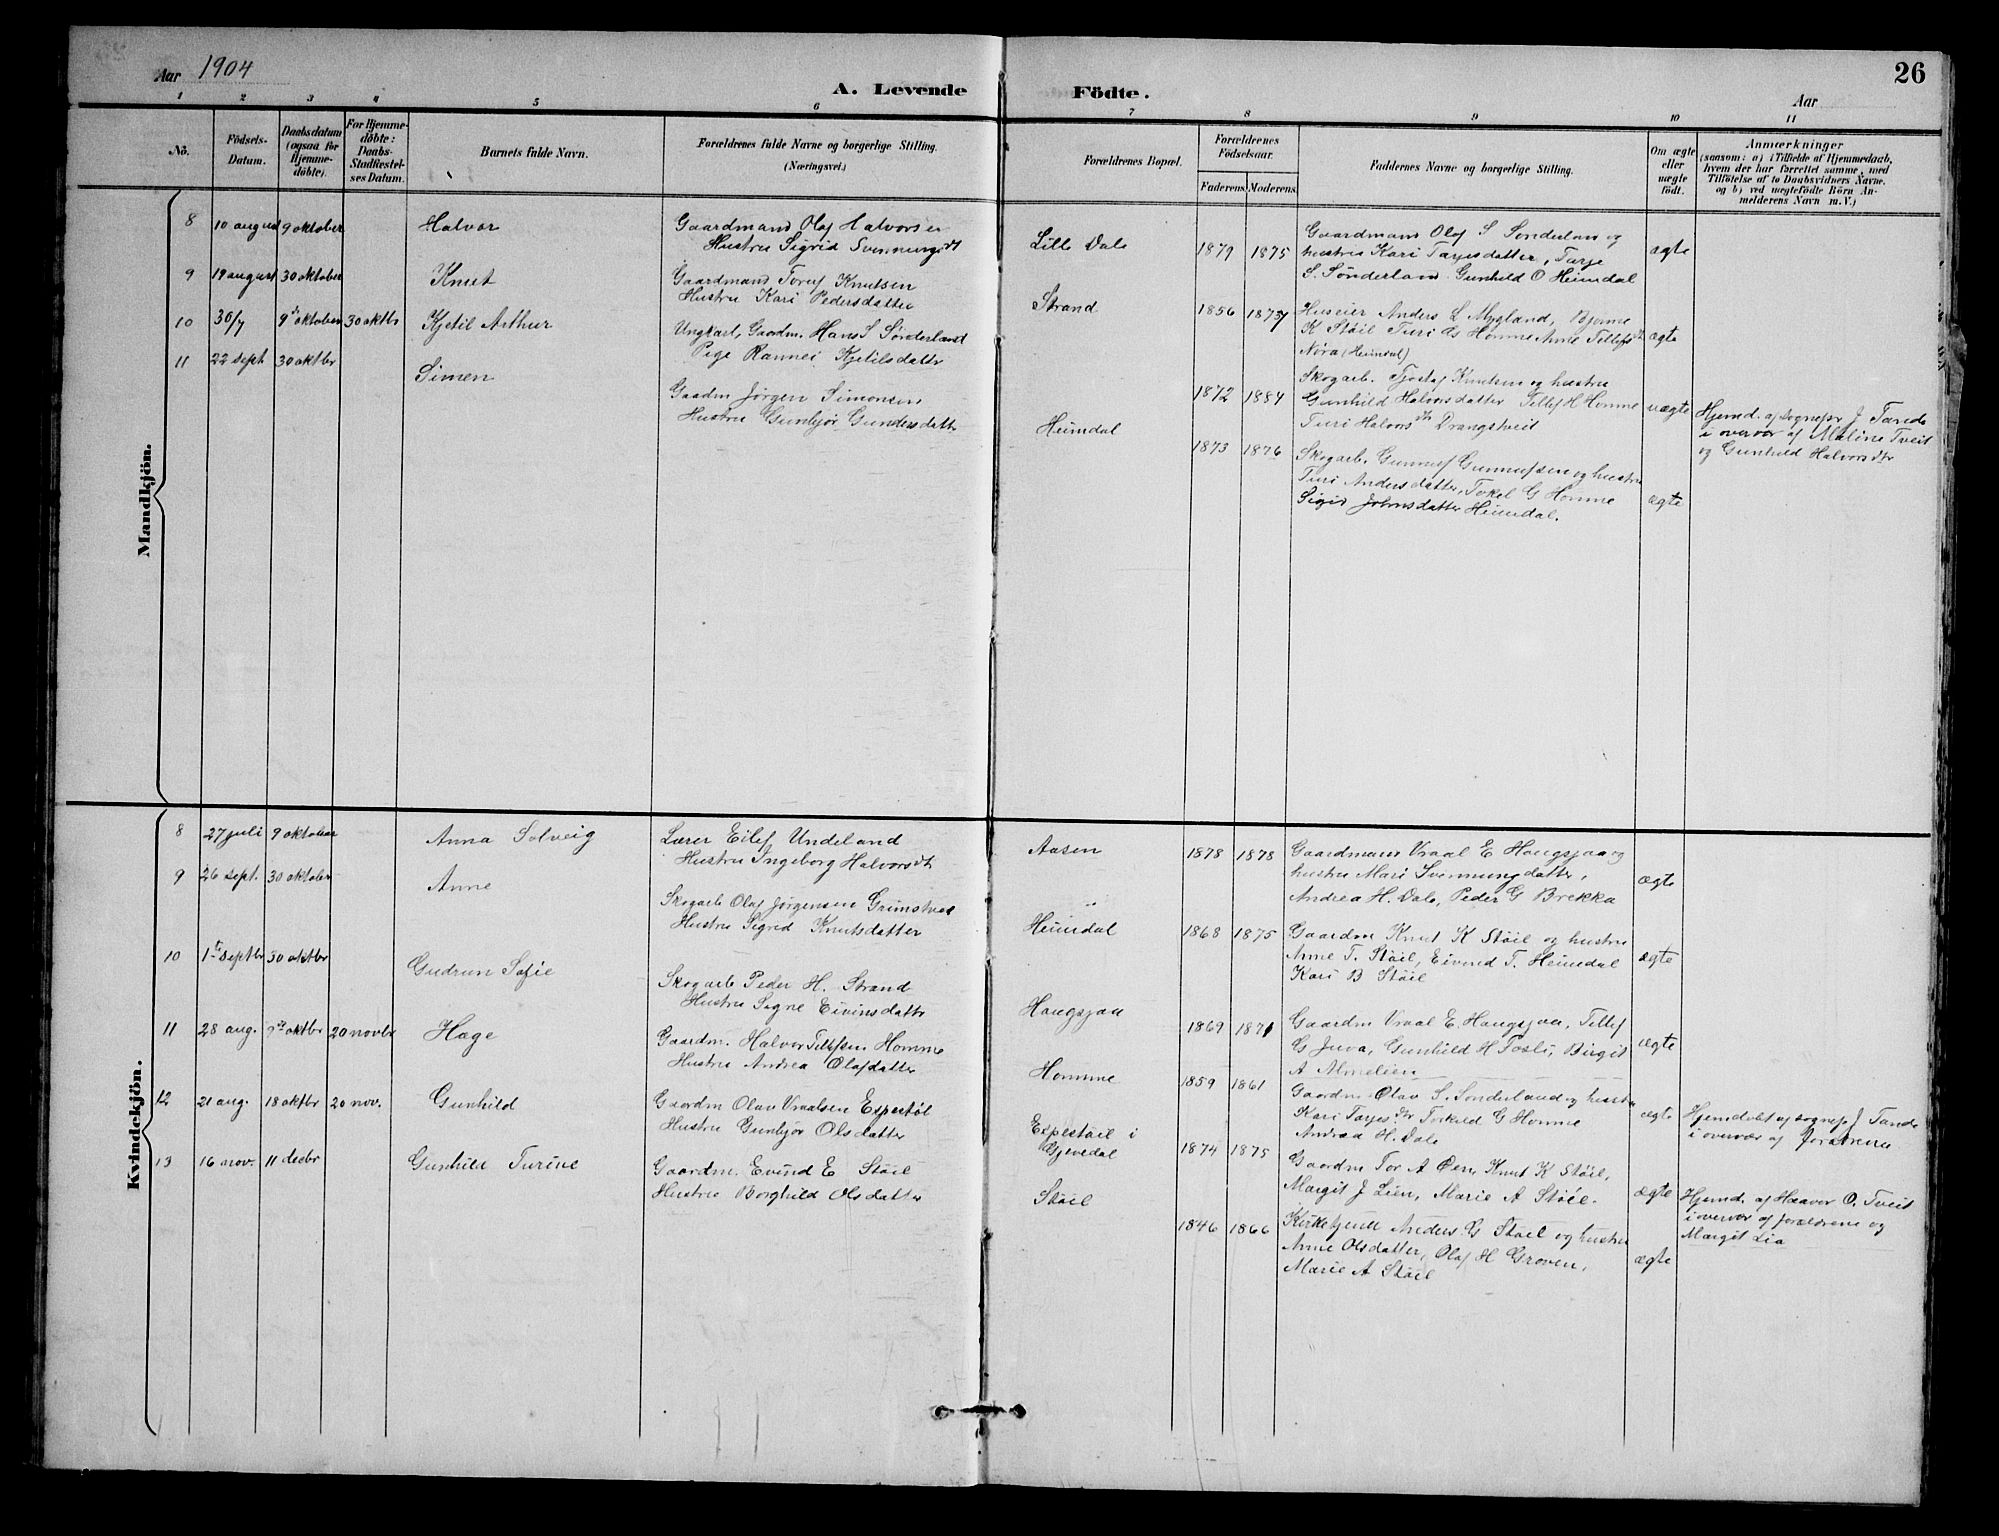 Aar 1904
A. Levende Födte.
Aar
26
1 2 3 4 5 6 7 8 9 10 11
No.
Födsels-Datum.
Daabsdatum (ogsaa for Hjemme-döbte).
For Hjemme-döbte: Daabs-Stadfæstel-ses Datum.
Barnets fulde Navn.
Forældrenes fulde Navne og borgerlige Stilling.
(Næringsvei.)
Forældrenes Bopæl.
Forældrenes Födselsaar.
Faderens. Moderens.
Faddernes Navne og borgerlige Stilling.
Om ægte eller uægte födt.
Anmærkninger
(saasom: a) i Tilfælde af Hjemmedaab, hvem der har forrettet samme, med Tilföielse af to Daabsvidners Navne, og b) ved uegtefödte Börn An-melderens Navn m. V.)
Mandkjön.
8 10 august 9 oktober Halvor
Gaardmand Olaf Halvorsen
Hustru Sigrid Svennungsdt
Lille Dale 1879 1875
Gaardmand Olaf S Sønderland og
hustru Kari Tarjesdatter, Tarje
S. Sønderland. Gunhild O Heimdal
ægte
9 19 august 30 oktober Knut
Gaardmand Toref Knutsen
Hustru Kari Pedersdatter
Strand 1856 1873
Huseier Anders L Mygland, Bjorne
K Støil Turi Hommme Anne Tellefsdtr
Nora (Heimdal)
ægte
10 30/7 9de oktober 30 oktbr Kjetil Arthur
Ungkarl, Gaardm. Hans S Sønderland
Pige Rannei Kjetilsdatter
1872 1884
Skogarb. Tjostaf Knutsen og hustru
Gunhild Halvorsdatter Tellef H Homme
Turi Halvorsdtr Drangstveit
uægte
Hjemd. af sognepr J Tande
i overvær af Maline Tveit
og Gunhild Halvorsdtr
11 22 sept 30 oktbr Simen
Gaardm Jørgen Simonsen
Hustru Gunbjør Gundersdatter
Heimdal 1873 1876
Skogarb. Gunnuf Gunnufsen og hustru
Turi Andersdatter, Tokel G Homme
Sigrid Johnsdatter Heimdal.
ægte
Kvindekjön.
8 27 juli 9 oktober Anna Solveig
Lærer Eilef Undeland
Hustru Ingeborg Halvorsdt
Aasen 1878 1878
Gaardmann Vraal E Haugsjaa og
hustru Mari Svennungdatter,
Andrea H. Dale, Peder G Brekka
ægte
9 26 sept. 30 oktober Anne
Skogarb Olaf Jørgensen Grimstved
Hustru Sigrid Knutsdatter
Heimdal 1868 1875
Gaardm Knut K Støil og hustru
Anne T. Støil, Eivind T. Heimdal
Kari B Støil
ægte
10 1te septbr 30 oktbr Gudrun Sofie
Skogarb Peder H. Strand
Hustru Signe Eivinsdatter
Haugsjaa 1869 1871
Gaardm Vraal E. Haugsjaa, Tellef
G Juva, Gunhild H Fosli, Birgit
A Almelien
ægte
11 28 aug. 9de oktbr 20 novbr Hage
Gaardm. Halvor Tellefsen Homme
Hustru Andrea Olafdatter
Homme 1859 1861
Gaardm Olav S. Sønderland og hustru
Kari Tarjesdtr Torkild G Homme
Andrea H. Dale
ægte
Hjemdøbt af sognepr J Tande
i overvær af forældrene
12 21 aug. 18 oktbr 20 nov. Gunhild
Gaardm Olav Vraalsen Espestøl
Hustru Gunbjør Olsdatter
Espestøil i
Gjevedal 1874 1875
Gaardm Tor A Øen, Knut K Støil,
Margit J Lien, Marie A Støil.
ægte
Hjemd. af Haaver O. Tveit
i overvær af forældrene og
Margit Lia
13 16 nov. 11 decbr Gunhild Turine
Gaardm. Evind E Støil
Hustru Borghild Olsdatter
Støil 1846 1866
Kirketjener Anders G Støil og hustru
Anne Olsdatter, Olaf H Groven,
Marie A Støil
ægte